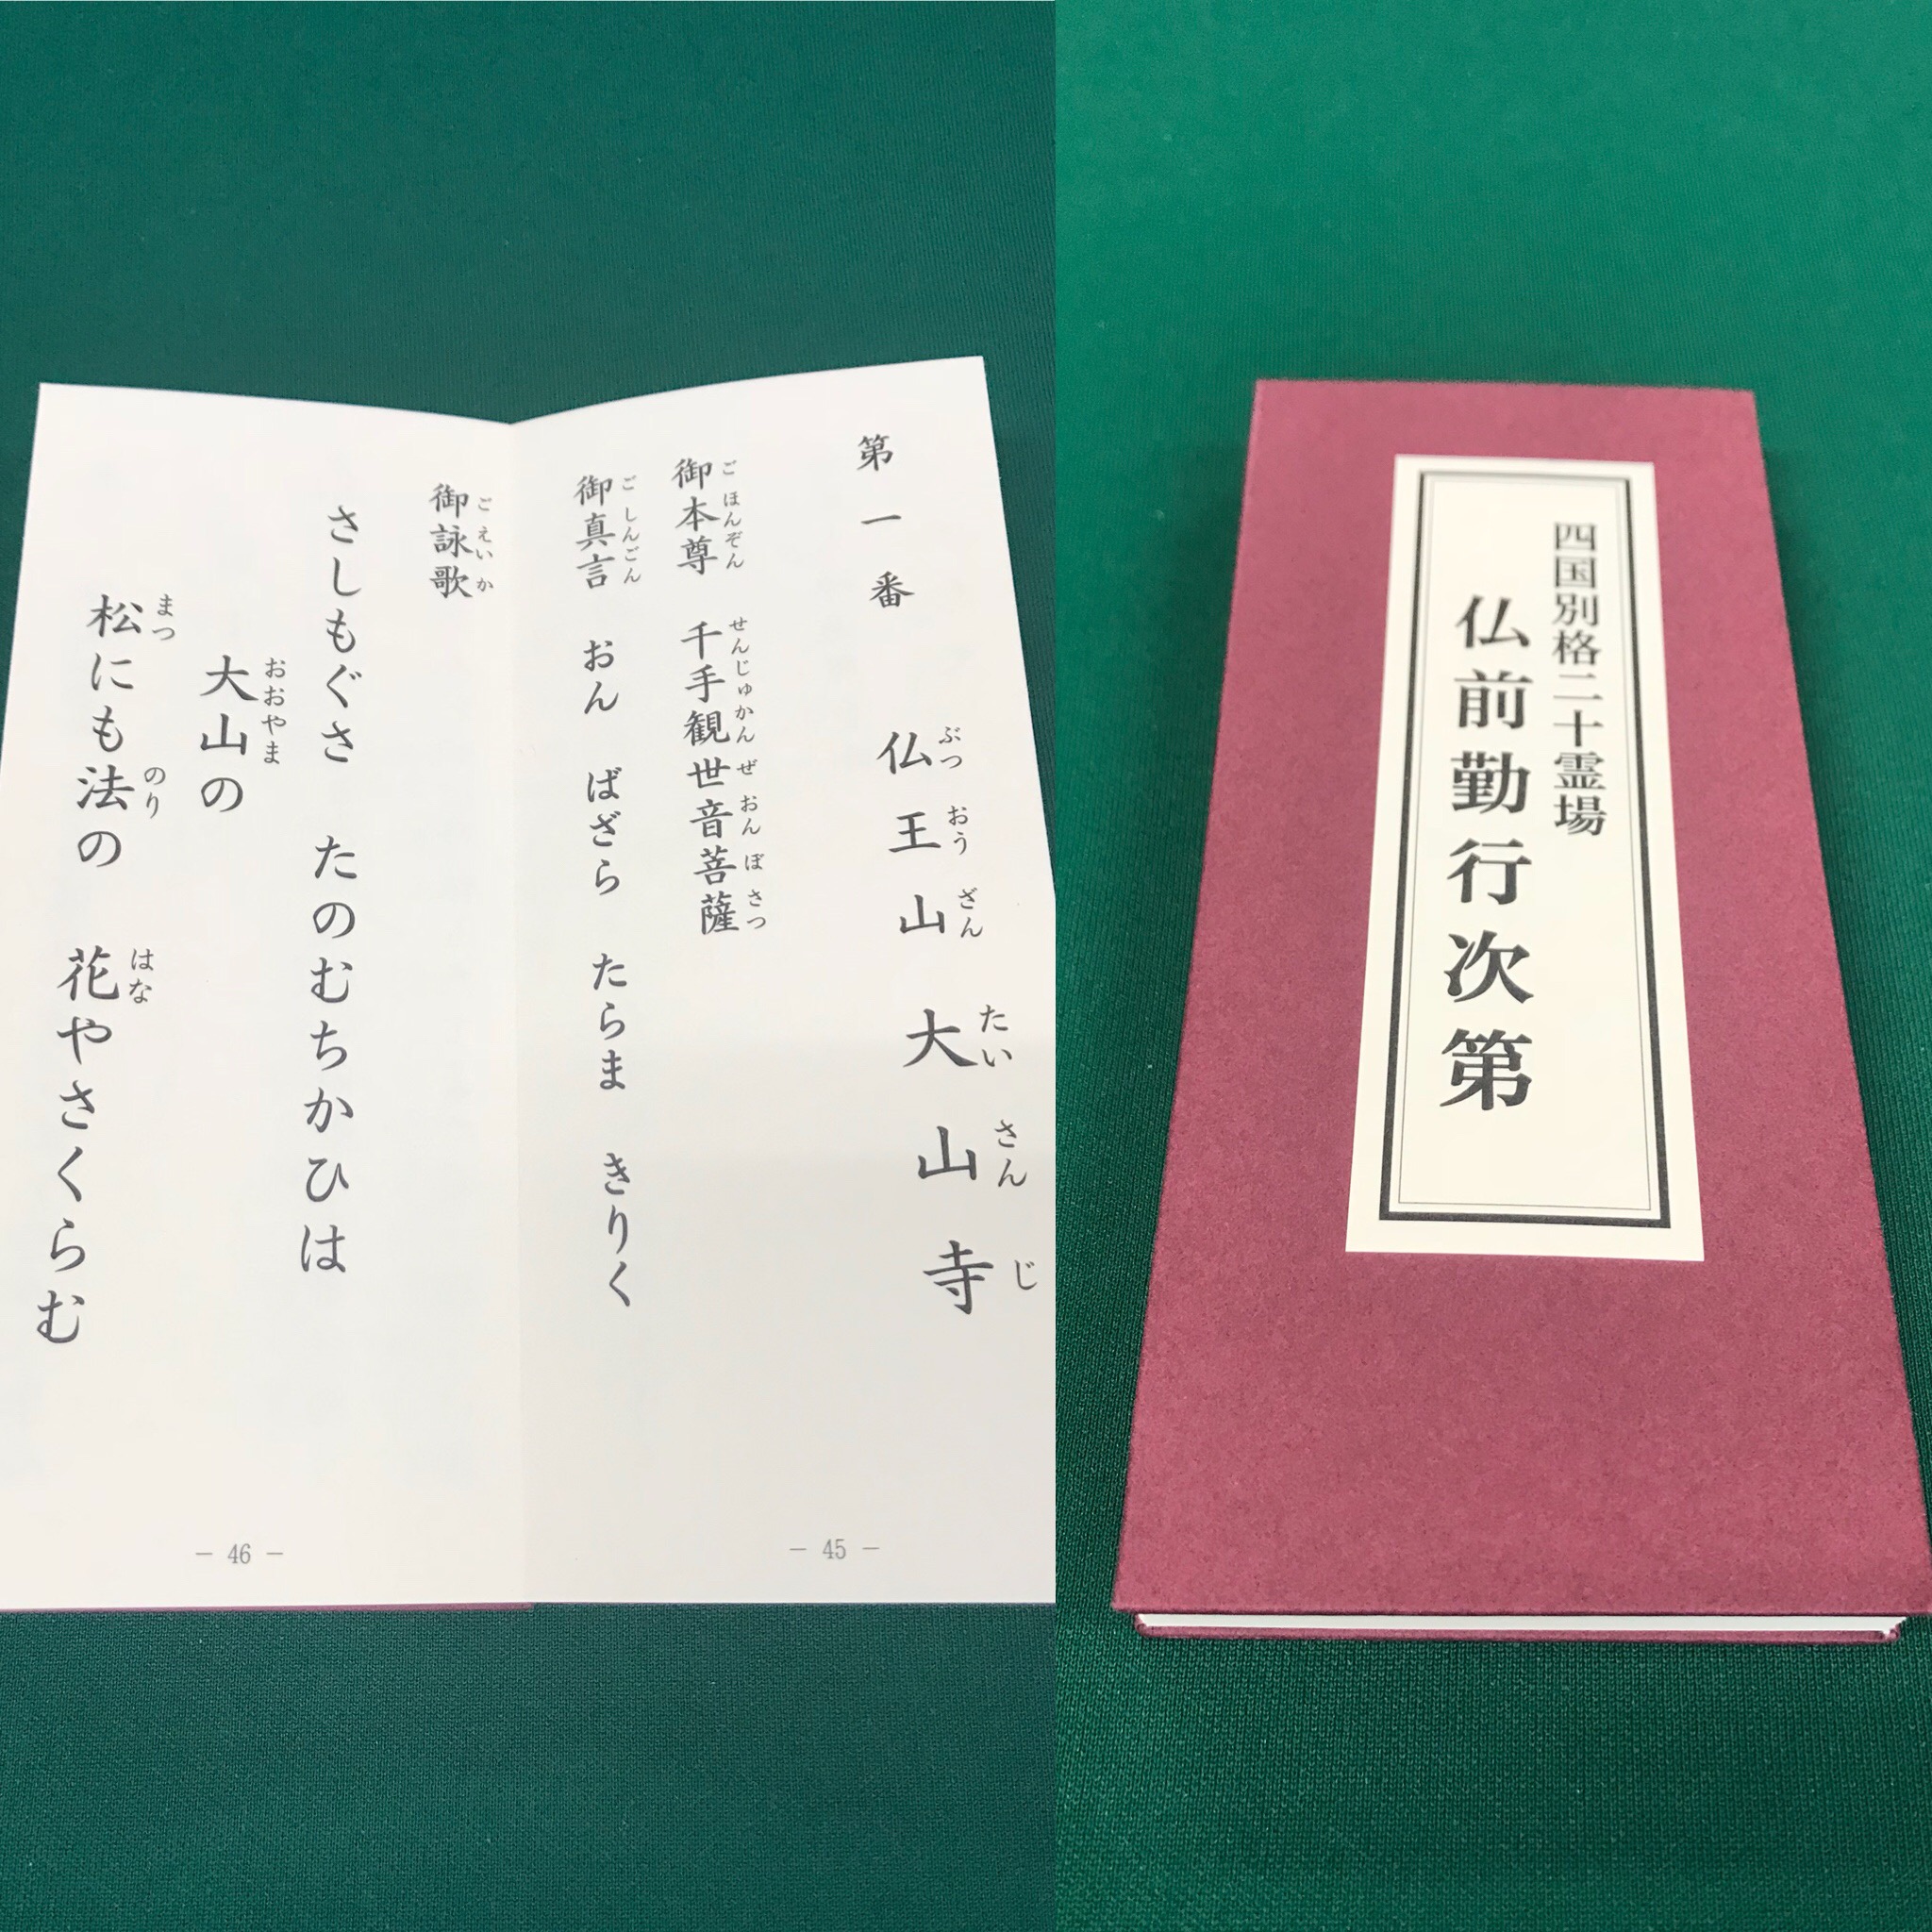 第一番 仏王山 大山寺
ぶつおうざん たいさんじ
御本尊 千手観世音菩薩
ごほんぞん せんじゅかんぜおんぼさつ
御真言 おん ばざら たらま きりく
ごしんごん
御詠歌
ごえいか
さしもぐさ たのむちかひは
大山の
おおやま
松にも法の 花やさくらむ
まつ のり はな
― 45 ―
― 46 ―
四国別格二十霊場
仏前勤行次第